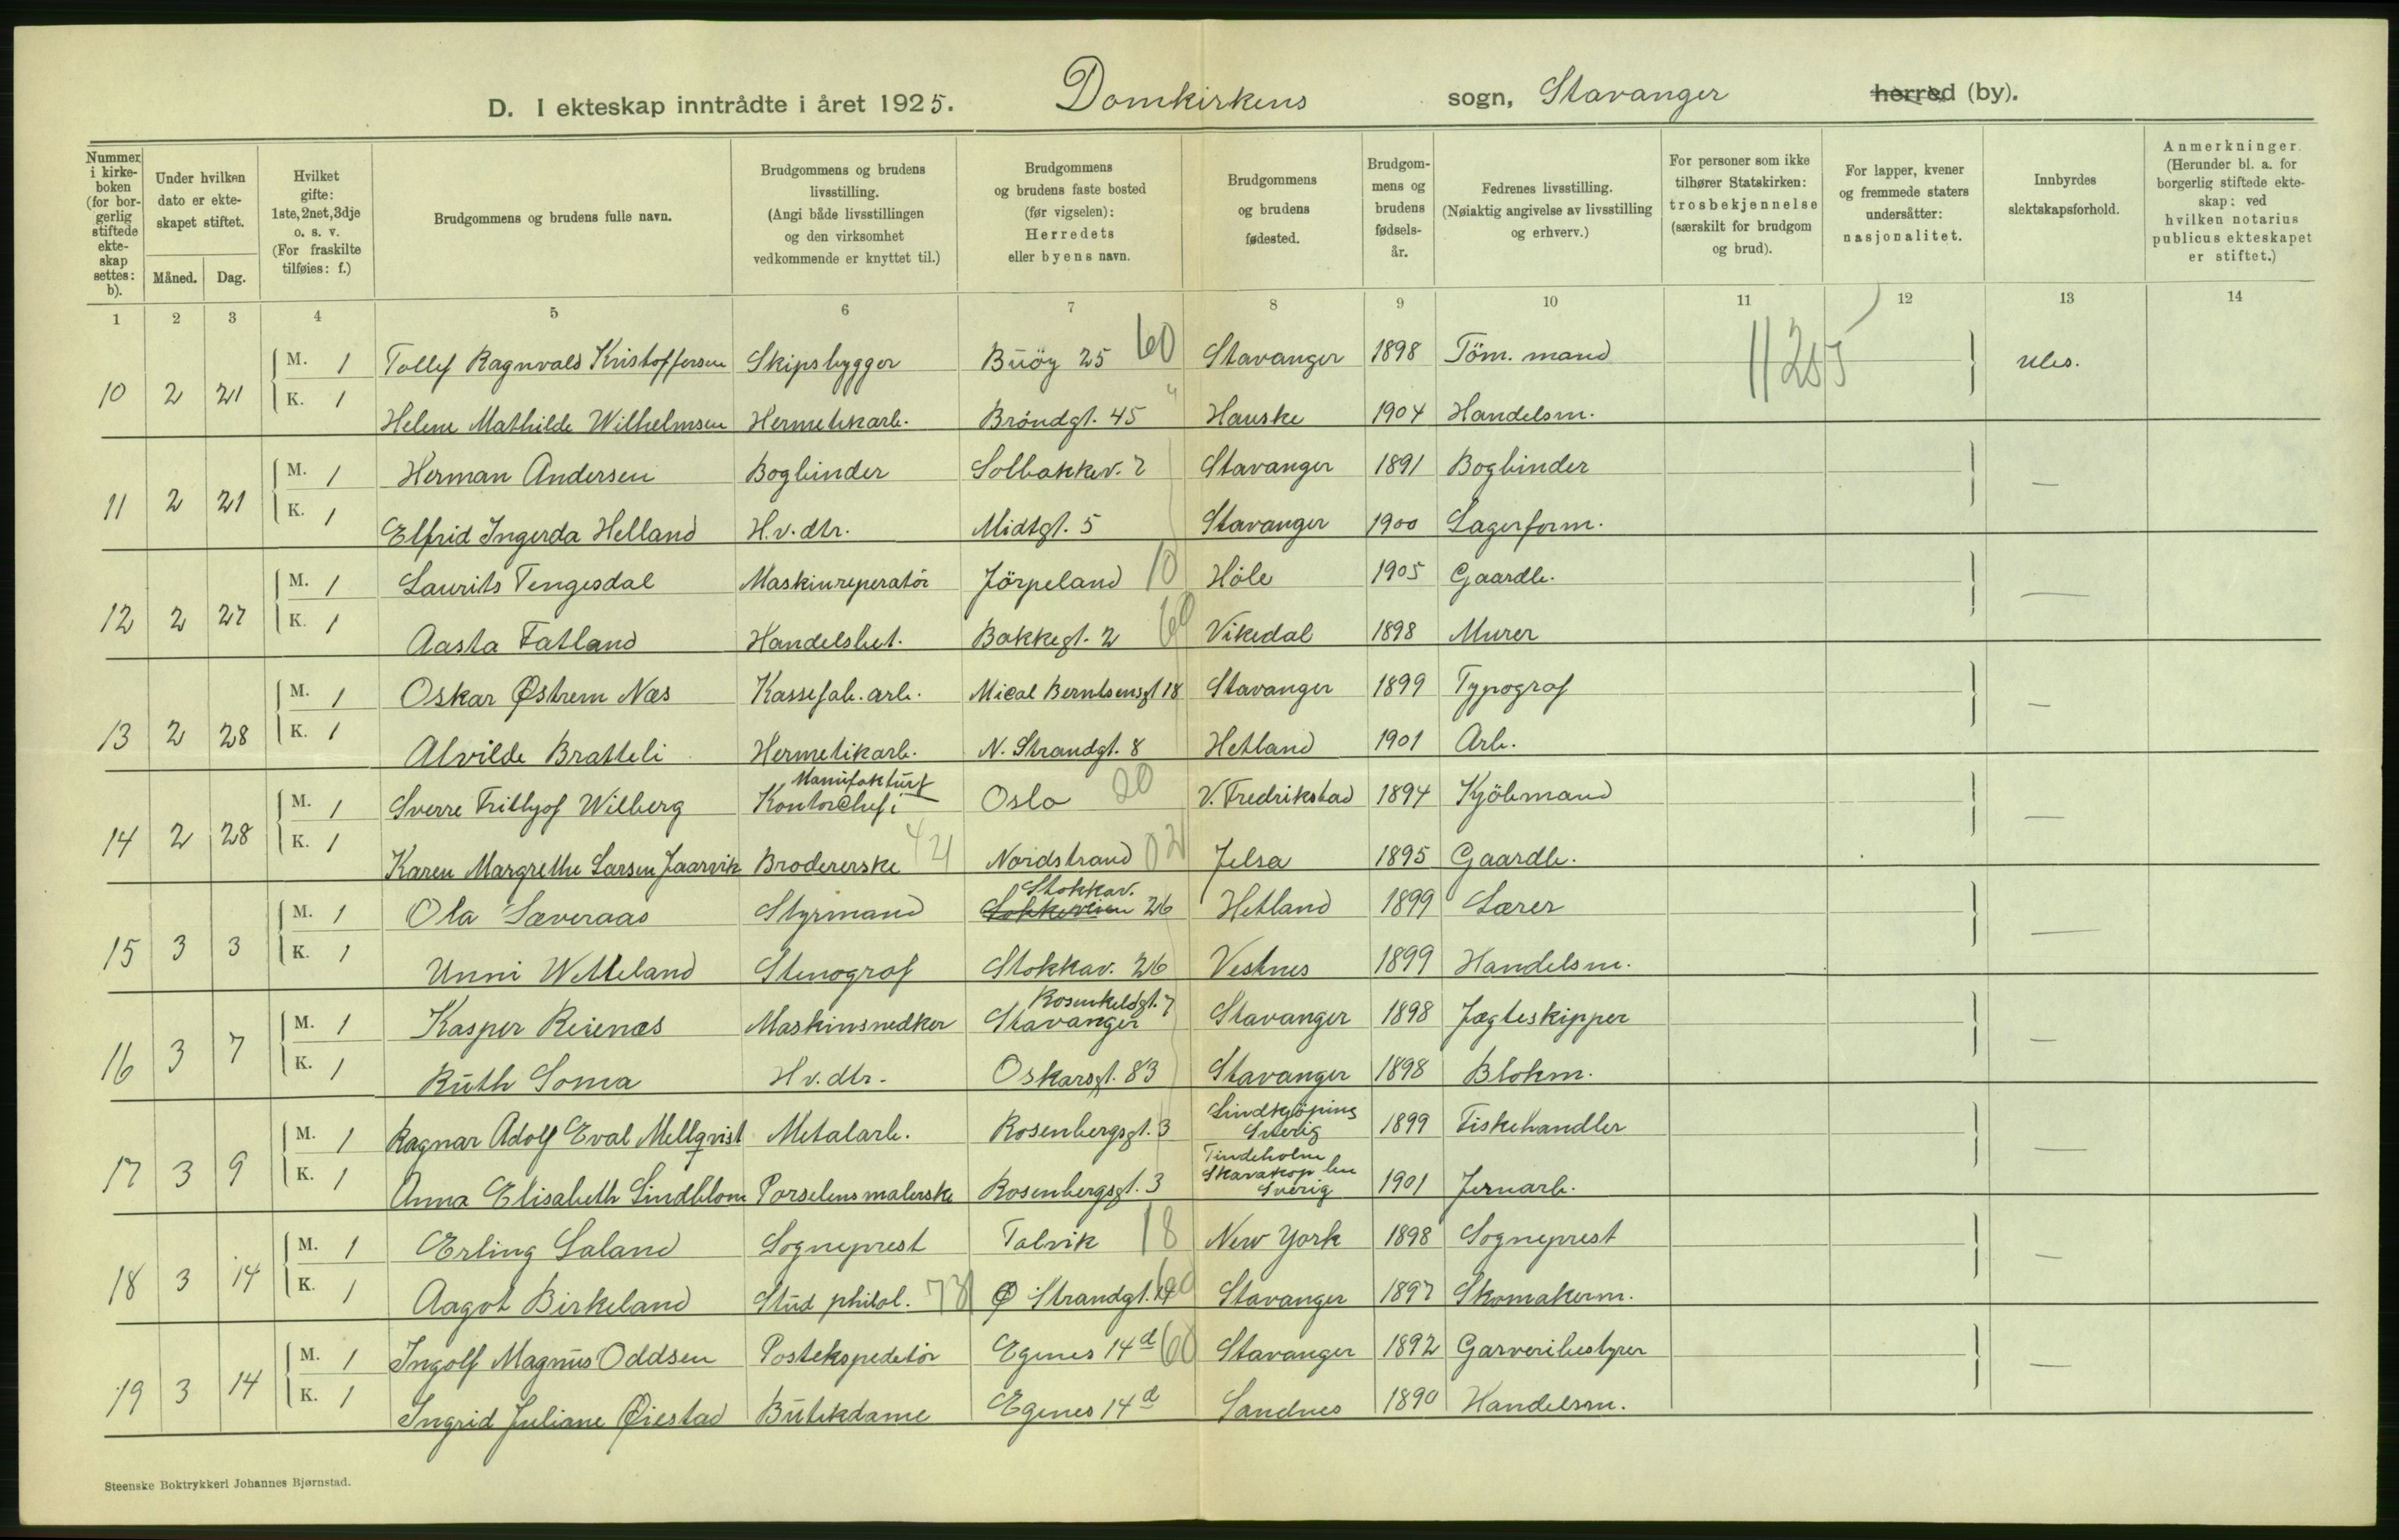 D. I ekteskap inntrådte i året 1925. Domkirkens sogn, Stavanger herred (by).
Nummer i kirke-boken (for bor-gerlig stiftede ekte-skap settes: b).
Under hvilken dato er ekte-skapet stiftet.
Måned. Dag.
Hvilket gifte: 1ste, 2net, 3dje o. s. v. (For fraskilte tilføies: f.)
Brudgommens og brudens fulle navn.
Brudgommens og brudens livsstilling. (Angi både livsstillingen og den virksomhet vedkommende er knyttet til.)
Brudgommens og brudens faste bosted (før vigselen): Herredets eller byens navn.
Brudgommens og brudens fødested.
Brudgom-mens og brudens fødsels-år.
Fedrenes livsstilling. (Nøiaktig angivelse av livsstilling og erhverv.)
For personer som ikke tilhører Statskirken: trosbekjennelse (særskilt for brudgom og brud).
For lapper, kvener og fremmede staters undersåtter: nasjonalitet.
Innbyrdes slektskapsforhold.
Anmerkninger. (Herunder bl. a. for borgerlig stiftede ekte-skap: ved hvilken notarius publicus ekteskapet er stiftet.)
1 2 3 4 5 6 7 8 9 10 11 12 13 14
10 2 21 M. 1 Tollef Ragnvald Kristoffersen Skipsbygger Buöy 25 60 Stavanger 1898 Töm. mand 11205 Ules.
K. 1 Helene Mathilde Wilhelmsen Hermetikarb. Bröndgt. 45 " Hauske 1904 Handelsm.
11 2 21 M. 1 Herman Andersen Bogbinder Solbakkev. 2 Stavanger 1891 Bogbinder —
K. 1 Elfrid Ingerda Helland H.v.dtr. Midtgt. 5 Stavanger 1900 Lagerform.
12 2 27 M. 1 Laurits Tengesdal Maskinreperatör Jörpeland 10 Höle 1905 Gaardb. —
K. 1 Aasta Fatland Handelsbet. Bakkegt. 2 60 Vikedal 1898 Murer
13 2 28 M. 1 Oskar Østrem Næs Kassefab. arb. Mical Berntsensgt 18 Stavanger 1899 Typograf —
K. 1 Alvilde Bratteli Hermetikarb. N. Strandgt. 8 Hetland 1901 Arb.
14 2 28 M. 1 Sverre Frithjof Wilberg Kontorchef i Manufakturf Oslo 20 V. Fredrikstad 1894 Kjöbmand —
K. 1 Karen Margrethe Larsen Jaarvik Brodererske 421 Nordstrand 02 Jelsa 1895 Gaardb.
15 3 3 M. 1 Ola Sæveraas Styrmand Stokkav. 26 Hetland 1899 Lærer —
K. 1 Unni Wetteland Stenograf Stokkav. 26 Vestnes 1899 Handelsm.
16 3 7 M. 1 Kasper Reienæs Maskinsnedker Rosenkeldgt. 7 Stavanger Stavanger 1898 Jægteskipper —
K. 1 Ruth Soma H v. dtr. Oskarsgt. 83 Stavanger 1898 Blokm.
17 3 9 M. 1 Ragnar Adolf Eval Mellqvist Metalarb. Rosenbergsgt. 3 Lindkjöping Sverig 1899 Fiskehandler —
K. 1 Anna Elisabeth Lindblom Porselensmalerske Rosenbergsgt. 3 Tindeholm Sverig 1901 Jernarb.
18 3 14 M. 1 Erling Saland Sogneprest Talvik 18 New York 1898 Sogneprest —
K. 1 Aagot Birkeland Stud philol. Ø Strandgt. Stavanger 1897 Skomakerm.
19 3 14 M. 1 Ingolf Magnus Oddsen Postekspeditör Egenes 14 d 60 Stavanger 1892 Garveribestyrer —
K. 1 Ingrid Juliane Øiestad Butikdame Egenes 14 d Sandnes 1890 Handelsm.
Steenske Boktrykkeri Johannes Bjørnstad.